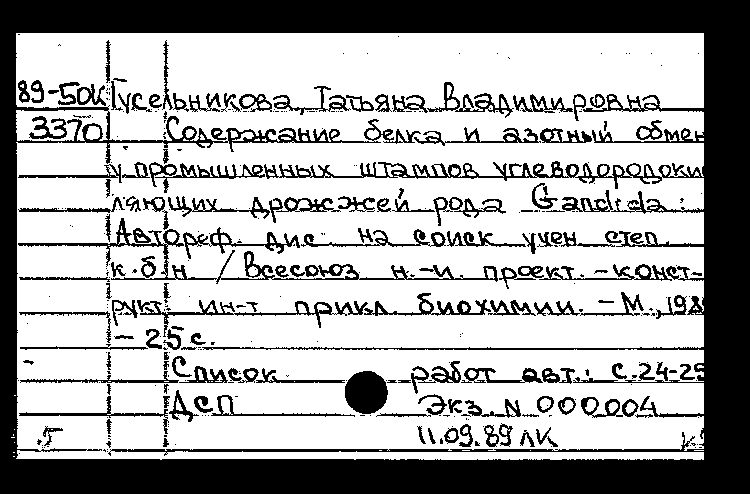 89-50К Гусельникова, Татьяна Владимировна
3370 Содержание белка и азотный обмен
у промышленных штампов углеводородоки
ляющих дрожжей рода Candida :
Автореф. дис. на соиск учен степ.
к.б.н / Всесоюз н.-и. проект. - конст-
рукт. ин-т прикл. биохимии. - М., 198
- 25 с.
Список работ авт.: с.24-25
ДСП Экз. N 000004
.5 11.09.89 ЛК